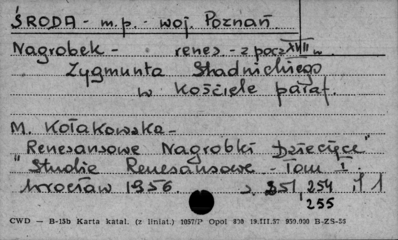 ŚRODA - m.p. - woj. Poznań
Nagrobek - renes - z pocz XVII w
Zygmunta Stadnickiego
w Kościele paraf.
M. Kołakowska -
Renesansowe Nagrobki Dziecięce"
"Studia Renesansowe - Tom I
Wrocław 1956. s. 251, 254
255
CWD — B-15b Karta katal. (z liniat.) 1057/P Opol 930 19.III.57 950.000 B-ZS-55